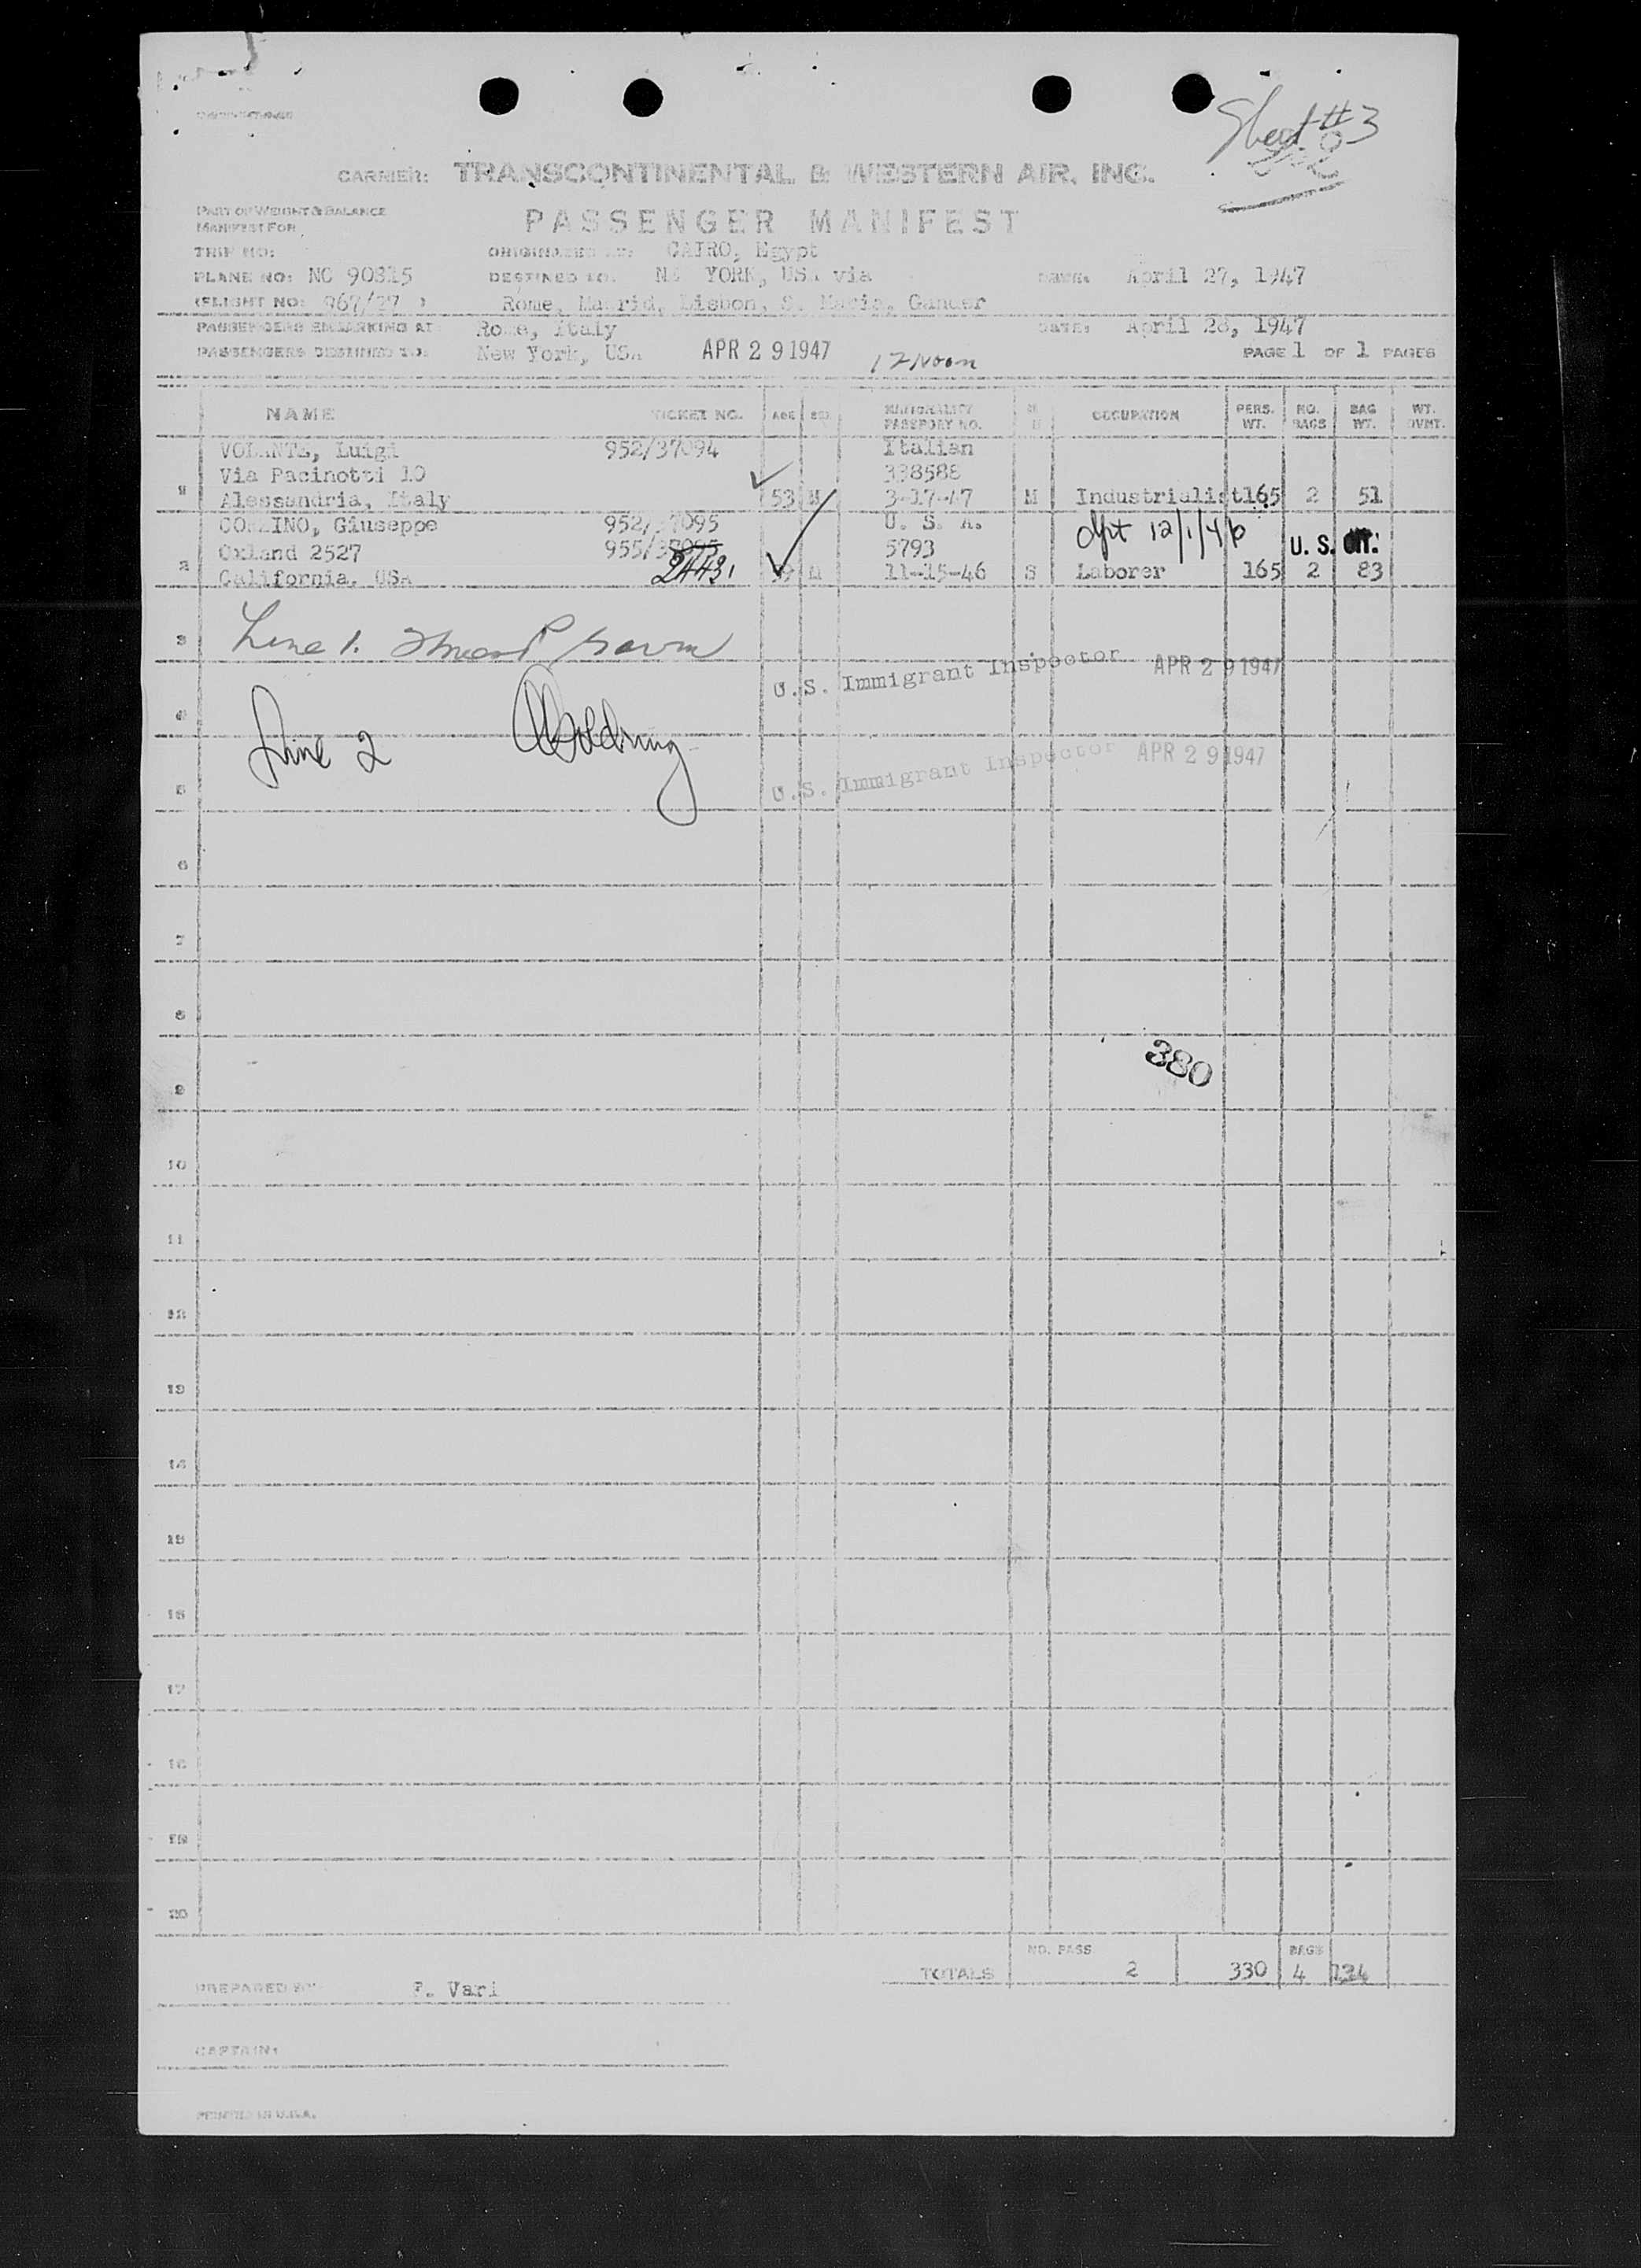 Sheet #3
CARRIER: TRANSCONTINENTAL & WESTERN AIR, INC.
PART OF WEIGHT & BALANCE
MANIFEST FOR
PASSENGER MANIFEST
TRIP NO: ORIGINATED AT: CAIRO, Egypt
PLANE NO: NC 90815 DESTINED TO: YORK, USA via DATE: April 27, 1947
(FLIGHT NO: 967/27 ) Rome, Madrid, Lisbon, S. Maria, Gander
PASSENGERS EMBARKING AT Rome, Italy DATE: April 28, 1947
PASSENGERS DESTINED TO: New York, USA APR 29 1947 12 Noon PAGE 1 OF 1 PAGES
NAME TICKET NO. AGE SEX NATIONALITY PASSPORT NO. OCCUPATION PERS. WT. NO. BAGS BAG WT. WT. OVHT.
VOLANTE, Luigi 952/37094 Italian
Via Pacinotti 10 338588
1 Alessandria, Italy 53 M 3-17-47 M Industrialist 165 2 51
Giuseppe 952/37095 U. S. A.
2527 955/ 5793 dpt 12/1/46 U. S. CIT.
2 California, USA 2443 M 11-15-46 S Laborer 165 2 83
3 Line 1.
U.S. Immigrant Inspector APR 29 1947
4
Line 2
U.S. Immigrant Inspector APR 29 1947
5
6
7
8
380
9
10
11
12
13
14
15
16
17
18
19
20
NO. PASS BAGS
TOTALS 2 330 4 134
PREPARED BY: F. Vari
CAPTAIN:
PRINTED IN U.S.A.